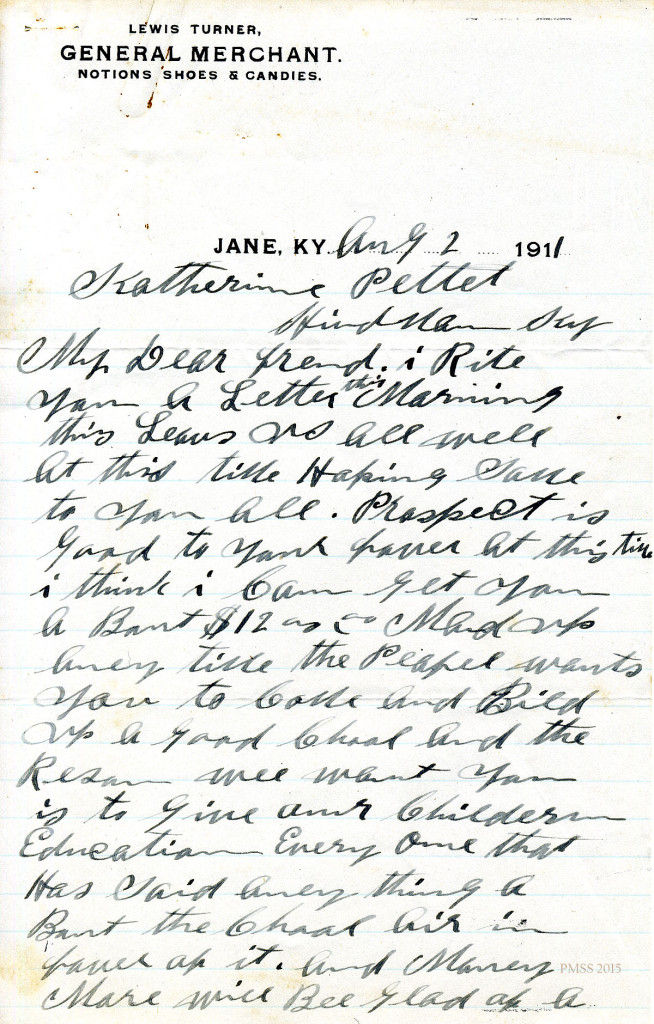 LEWIS TURNER,
GENERAL MERCHANT.
NOTIONS SHOES & CANDIES.
JANE, KY. Aug 2 1911
Katherine Pettet
Hindman Ky
My Dear frend. i Rite
you a Letter this Morning
this Leavs us all well
at this time Hoping Same
to you all. Prospect is
good to your faver at this time
i think i Can get you
a Bout $12 00 00 Mad up
aney time the Peapel wants
you to Come and Bild
up a good Chool and the
Reson wee want you
is to give our Childern
Education Every One that
Has Said aney thing a
Bout the Chool air in
faver of it. and Maney
More will Bee Glad of a
PMSS 2015